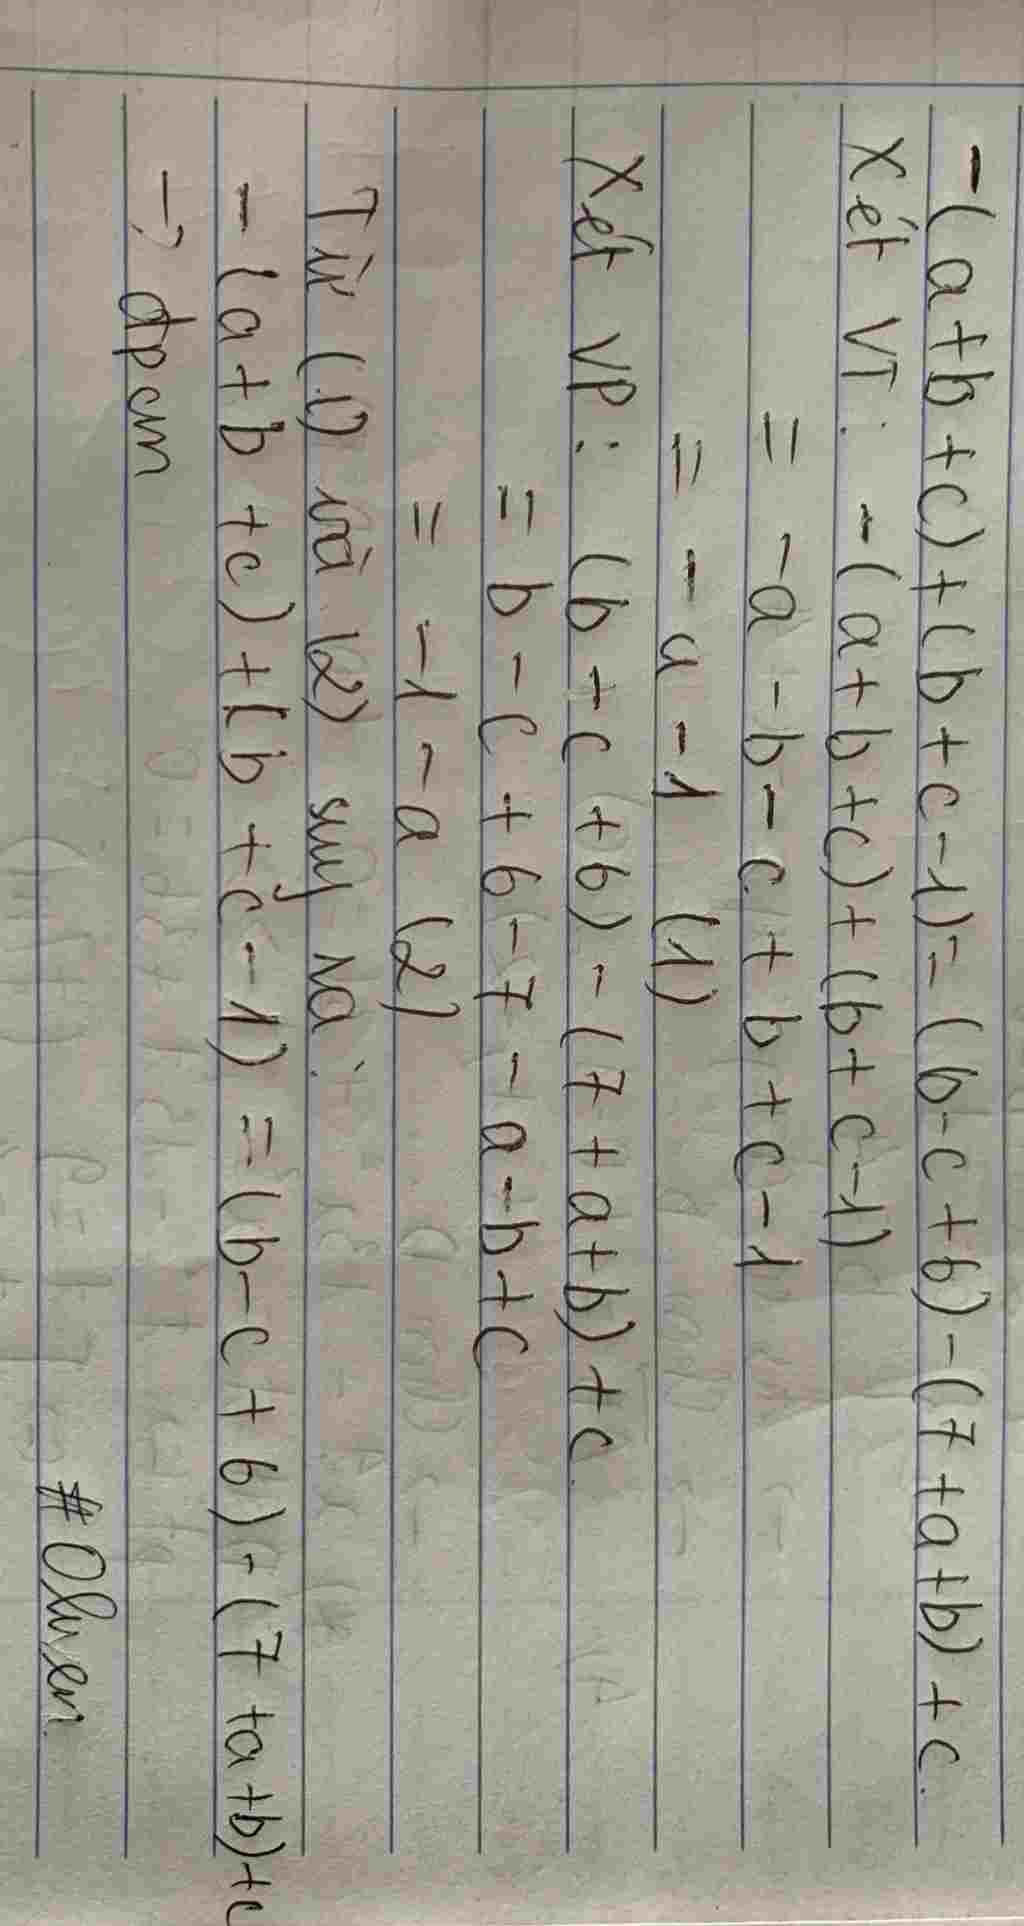 -(a+b+c)+(b+c-1)=(b-c+6)-(7+a+b)+c.
Xét VT: -(a+b+c)+(b+c-1)
= -a-b-c+b+c-1
= -a-1 (1)
Xét VP: (b-c+6)-(7+a+b)+c.
= b-c+6-7-a-b+c
= -1-a (2)
Từ (1) và (2) suy ra:
-(a+b+c)+(b+c-1)=(b-c+6)-(7+a+b)+c
→ đpcm